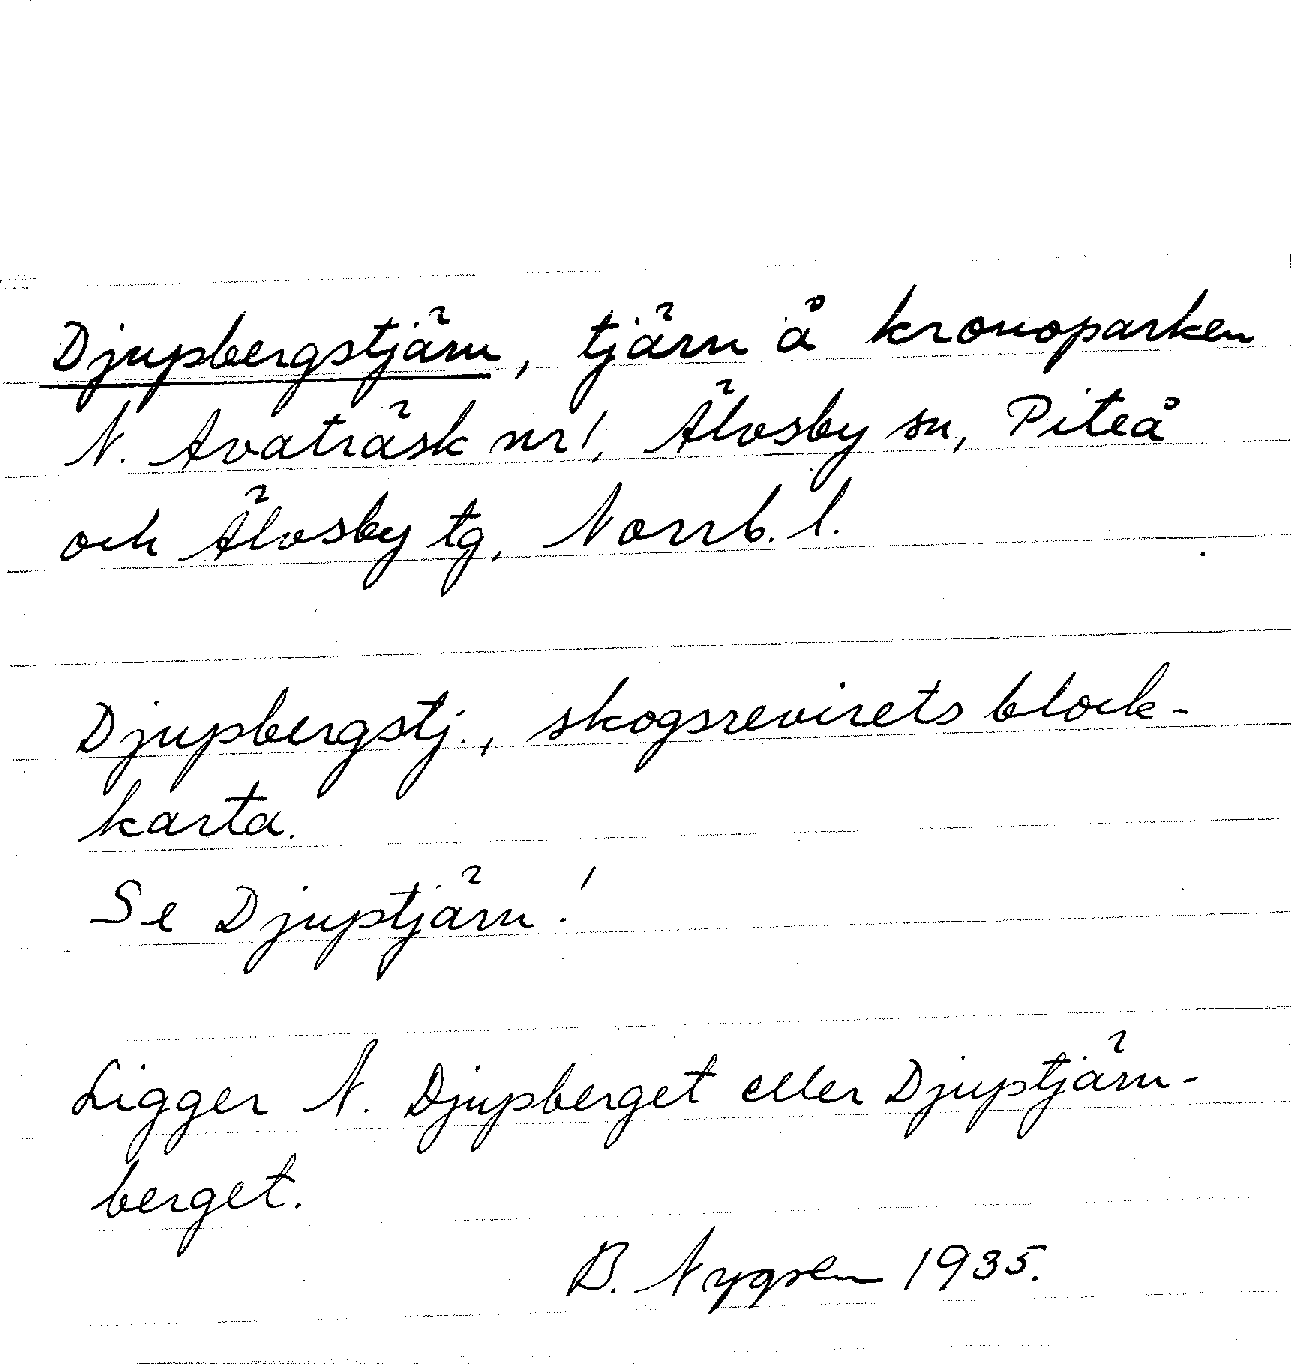 Djupbergstjärn, tjärn å kronoparken
N. Avaträsk nr 1, Älvsby sn, Piteå
och Älvsby tg, Norrb. l.
Djupbergstj., skogsrevirets block-
karta.
Se Djuptjärn!
Ligger N. Djupberget eller Djuptjärn-
berget.
B. Nygren 1935.